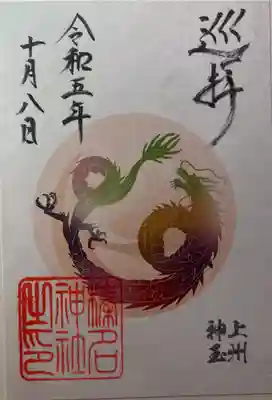 巡拝
上州
神玉
令和五年
十月八日
榛名
神社
之印